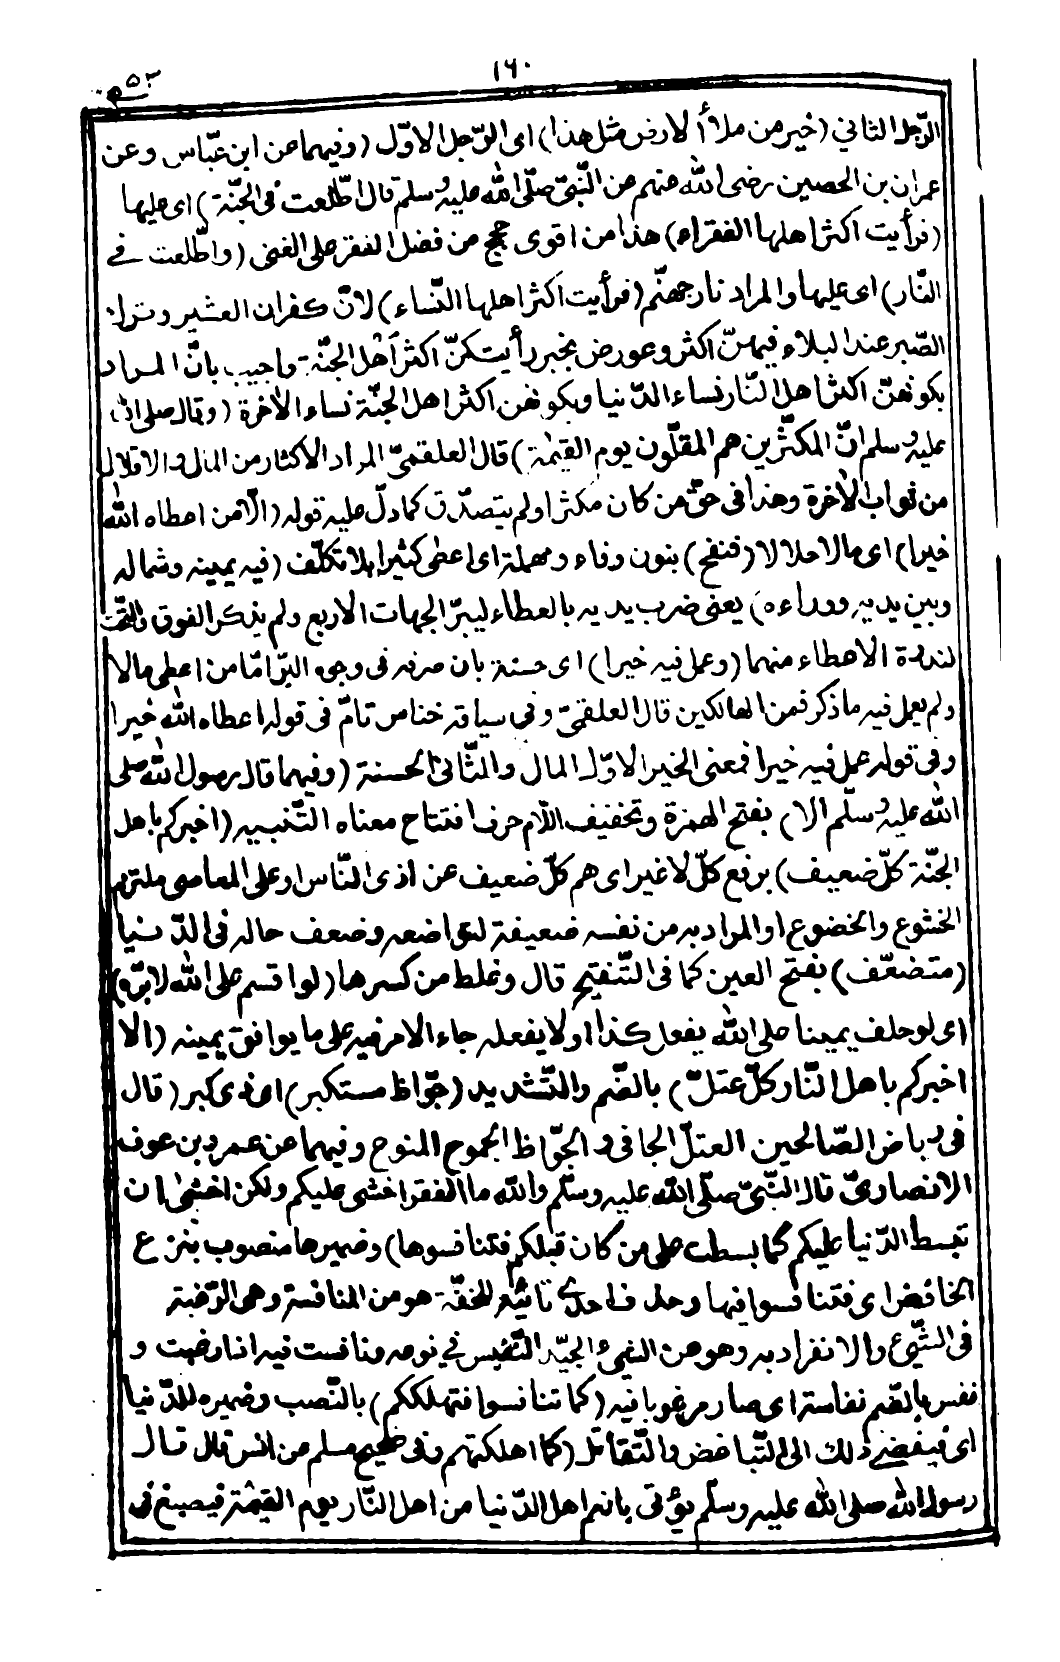 ١٦٠
٥٢
الرّجل الثاني (خير من ملأ الارض مثل هذا) اى الرّجل الاوّل (وفيهما عن ابن عبّاس وعن
عمران بن الحصين رضى الله عنهم عن النّبىّ صلّى الله عليه وسلم قال اطّلعت فى الجنّة) اى عليها
(فرأيت اكثر اهلها الفقراء) هذا من اقوى حجج من فضل الفقر على الغنى (واطّلعت فے
النّار) اى عليها والمراد نار جهنّم (فرأيت اكثر اهلها النّساء) لانّ كفران العشير وترك
الصّبر عند البلاء فيهنّ اكثر وعورض بخبر رأيتكنّ اكثر اهل الجنّة واجيب بانّ المراد
بكونهنّ اكثر اهل النّار نساء الدّنيا وبكونهن اكثر اهل الجنّة نساء الآخرة (وقال صلى الله
عليه وسلم انّ المكثّرين هم المقلّون يوم القيٰمة) قال العلقمىّ المراد الاكثار من المال والاقلال
من ثواب الآخرة وهذا فى حقّ من كان مكثرا ولم يتصدّق كما دلّ عليه قوله (الّا من اعطاه الله
خيرا) اى مالا حلالا (فنفح) بنون وفاء ومهملة اى اعطى كثيرا بلا تكلّف (فيه يمينه وشماله
وبين يديه ووراءه) يعنى ضرب يديه بالعطاء ليبرّ الجهات الاربع ولم يذكر الفوق والتّحت
لندرة الاعطاء منهما (وعمل فيه خيرا) اى حسنة بان صرفه فى وجوه البرّ امّا من اعطى مالا
ولم يعمل فيه ما ذكر فمن الهالكين قال العلقمىّ وفى سياقه جناس تامّ فى قوله اعطاه الله خيرا
وفى قوله عمل فيه خيرا فمعنى الخير الاوّل المال والثّانى الحسنة (وفيهما قال رسول الله صلى
الله عليه وسلّم الا) بفتح الهمزة وتخفيف اللّام حرف افتتاح معناه التّنبيه (اخبركم باهل
الجنّة كلّ ضعيف) برفع كلّ لا غير اى هم كلّ ضعيف عن اذى النّاس او على المعاصى ملتزم
الخشوع والخضوع او المراد به من نفسه ضعيفة لتواضعه وضعف حاله فى الدّنيا
(متضعّف) بفتح العين كما فى التّنقيح قال وغلط من كسرها (لو اقسم على الله لابرّه)
اى لو حلف يمينا على الله يفعل كذا او لا يفعله جاء الامر فيه على ما يوافق يمينه (الا
اخبركم باهل النّار كلّ عتلّ) بالضّم والتّشديد (جوّاظ مستكبر) اى ذى كبر (قال
فى رياض الصّالحين العتلّ الجافى والجوّاظ الجموع المنوع وفيهما عن عمرو بن عوف
الانصارىّ قال النّبىّ صلّى الله عليه وسلّم والله ما الفقر اخشى عليكم ولكن اخشى ان
تبسط الدّنيا عليكم كما بسطت على من كان قبلكم فتنافسوها) وضميرها منصوب بنزع
الخافض اى فتنافسوا فيها وحذف احدى تائيه للخفّة هو من المنافسة وهى الرّغبة
فى الشّىء والانفراد به وهو من الشىء الجيّد النّفيس فى نوعه ونافست فيه اذا رغبت و
نفس بالضّم نفاسة اى صار مرغوبا فيه (كما تنافسوا فتهلككم) بالنّصب وضميره للدّنيا
اى فيفضے ذلك الى التّباغض والتّقاتل (كما اهلكتهم وفى صحيح مسلم عن انس قال قال
رسول الله صلى الله عليه وسلّم يؤتى بانعم اهل الدّنيا من اهل النّار يوم القيٰمة فيصبغ فى